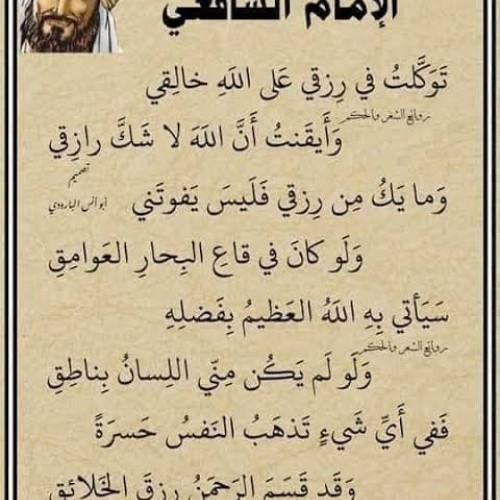 الإمام الشافعي
تَوَكَّلتُ في رِزقي عَلى اللَهِ خالِقي
روائع الشعر والحكم
وَأَيقَنتُ أَنَّ اللَهَ لا شَكَّ رازِقي
تصميم
أبو أنس البارودي
وَما يَكُ مِن رِزقي فَلَيسَ يَفوتَني
وَلَو كانَ في قاعِ البِحارِ العَوامِقِ
سَيَأتي بِهِ اللَهُ العَظيمُ بِفَضلِهِ
روائع الشعر والحكم
وَلَو لَم يَكُن مِنّي اللِسانُ بِناطِقِ
فَفي أَيِّ شَيءٍ تَذهَبُ النَفسُ حَسرَةً
وَقَد قَسَمَ الرَحمَنُ رِزقَ الخَلائِقِ